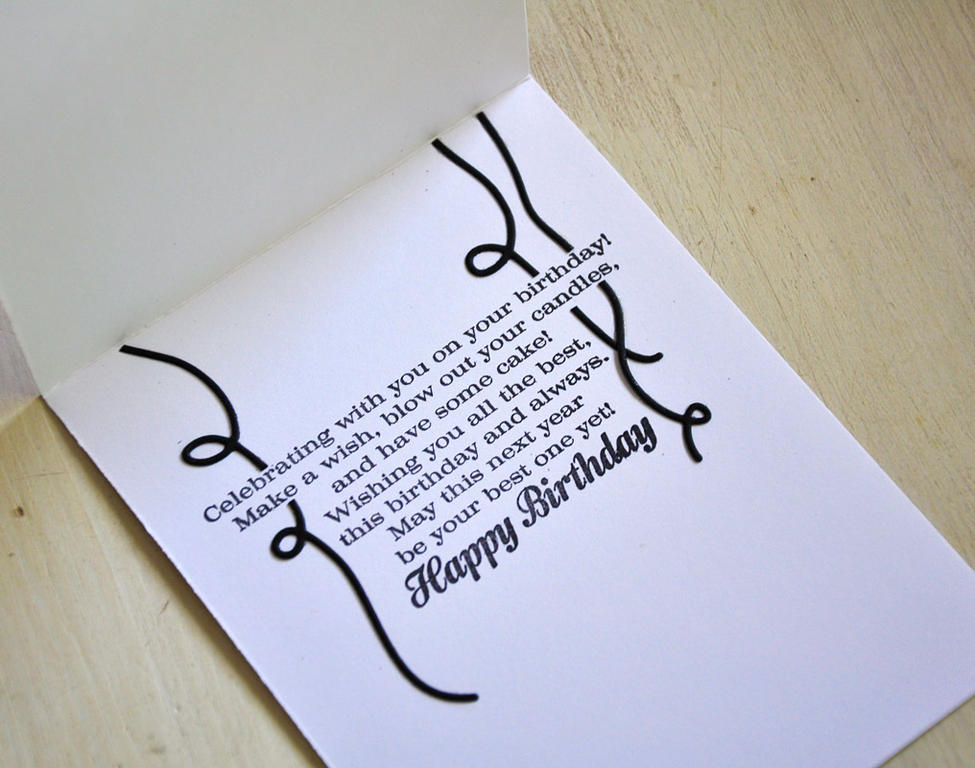 Celebrating with you on your birthday!
Make a wish, blow out your candles,
and have some cake!
Wishing you all the best,
this birthday and always.
May this next year
be your best one yet!
Happy Birthday